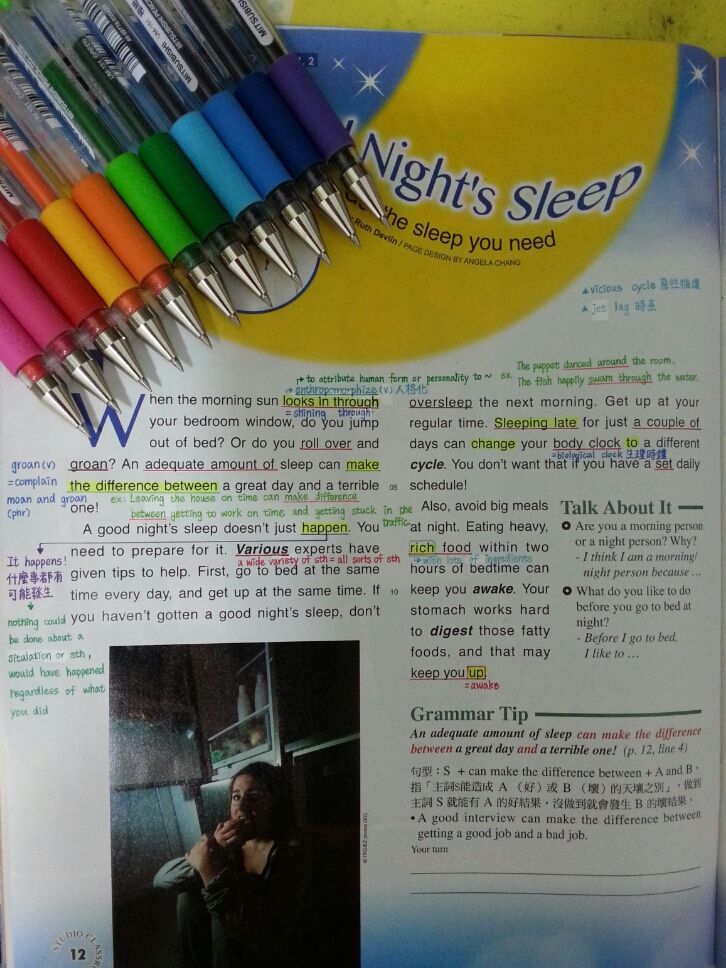 MITSUBISHI
MITSUBISHI
UM-151
MITSUBISHI
. 2
Night's Sleep
the sleep you need
Ruth Devlin / PAGE DESIGN BY ANGELA CHANG
▲ vicious cycle 惡性循環
▲ jet lag 時差
to attribute human form or personality to ~
anthropomorphize (v) 人格化
ex. The puppet danced around the room.
The fish happily swam through the water.
When the morning sun looks in through
= shining through.
your bedroom window, do you jump
out of bed? Or do you roll over and
groan? An adequate amount of sleep can make
the difference between a great day and a terrible
05
one!
ex: Leaving the house on time can make difference
between getting to work on time and getting stuck in the
traffic.
groan (v)
= complain
moan and groan
(phr)
A good night's sleep doesn't just happen. You
need to prepare for it. Various experts have
a wide variety of sth = all sorts of sth
given tips to help. First, go to bed at the same
time every day, and get up at the same time. If
10
you haven't gotten a good night's sleep, don't
It happens!
什麼事都有
可能發生
nothing could
be done about a
situlation or sth,
would have happened
regardless of what
you did
oversleep the next morning. Get up at your
regular time. Sleeping late for just a couple of
days can change your body clock to a different
= biological clock 生理時鐘
cycle. You don't want that if you have a set daily
schedule!
Also, avoid big meals
at night. Eating heavy,
rich food within two
wish lots of ingredients
hours of bedtime can
keep you awake. Your
stomach works hard
to digest those fatty
foods, and that may
keep you up.
= awake
Talk About It
Are you a morning person
or a night person? Why?
- I think I am a morning/
night person because ...
What do you like to do
before you go to bed at
night?
- Before I go to bed,
I like to ...
Grammar Tip
An adequate amount of sleep can make the difference
between a great day and a terrible one! (p. 12, line 4)
句型：S + can make the difference between + A and B，
指「主詞S能造成 A （好）或 B （壞）的天壤之別」，做到
主詞 S 就能有 A 的好結果，沒做到就會發生 B 的壞結果。
• A good interview can make the difference between
getting a good job and a bad job.
Your turn
STUDIO CLASSR
12